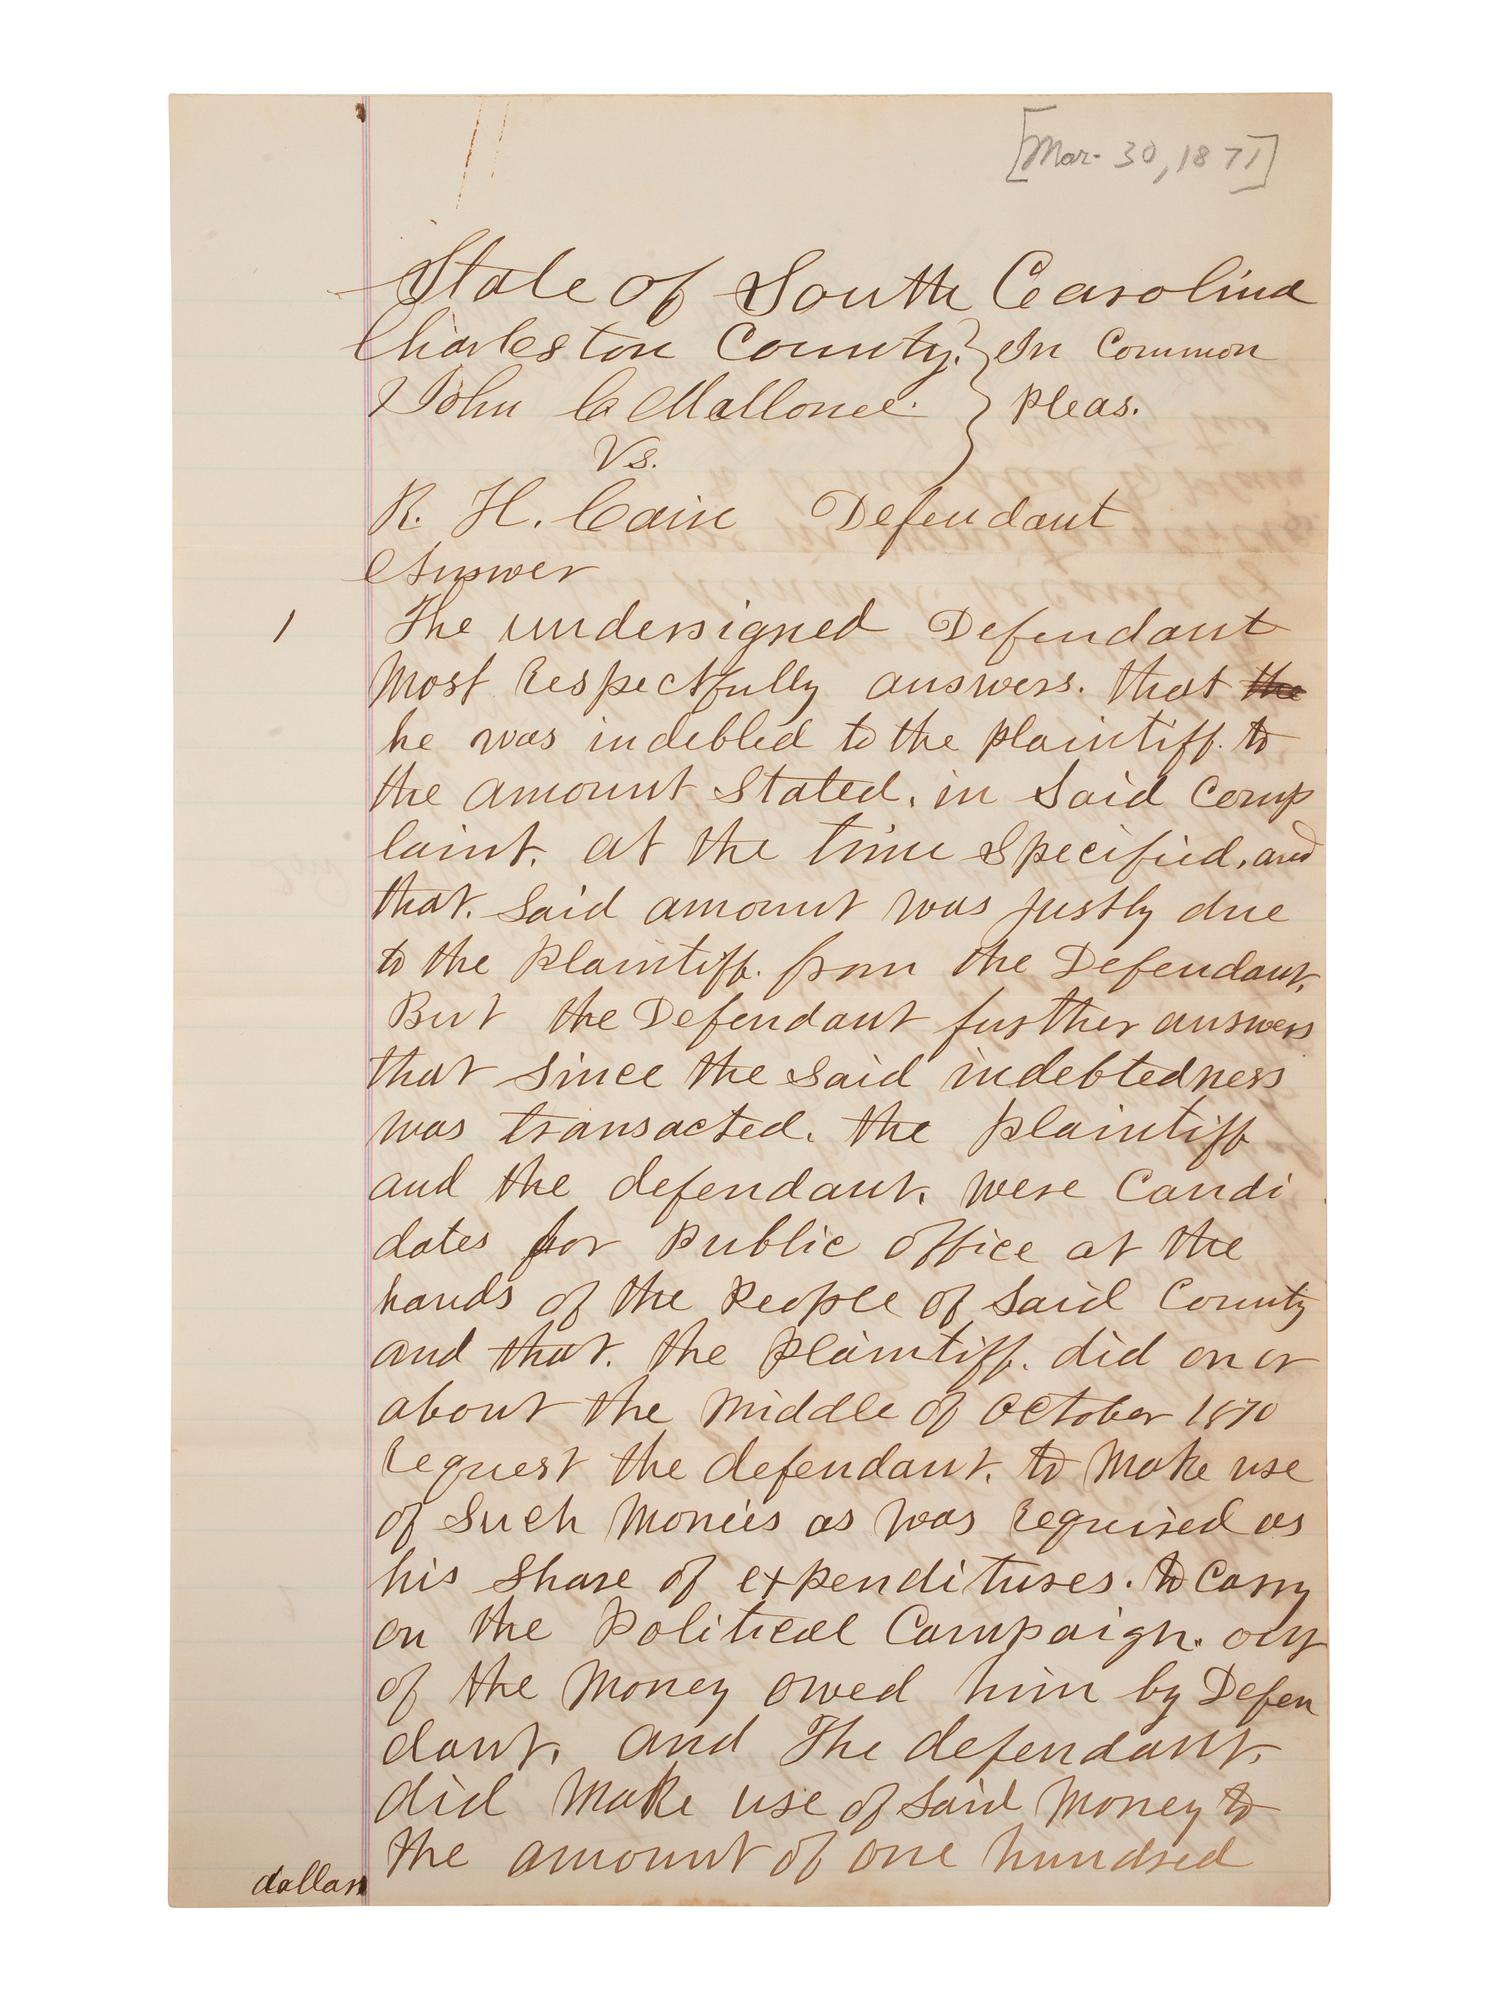 [Mar. 30, 1871]
State of South Carolina
Charleston County. } In Common
John C Mallonee. } Pleas.
Vs.
R. H. Cain Defendant
Answer
1 The undersigned Defendant
Most Respectfully answers. that the
he was indebted to the plaintiff. to
the amount Stated. in Said Comp
laint. at the time Specified, and
that. Said amount was justly due
to the Plaintiff. from the Defendant,
But the Defendant further answers
that Since the Said indebtedness
was transacted. the plaintiff
and the defendant. were Candi
dates for Public office at the
hands of the People of Said County
and that. the Plaintiff. did on or
about the Middle of October 1870
Request the defendant. to Make use
of Such Monies as was Required as
his Share of expenditures. to Carry
on the Political Campaign. out
of the Money owed him by Defen
dant. and The defendant.
did Make use of Said Money to
the amount of one hundred
dollars